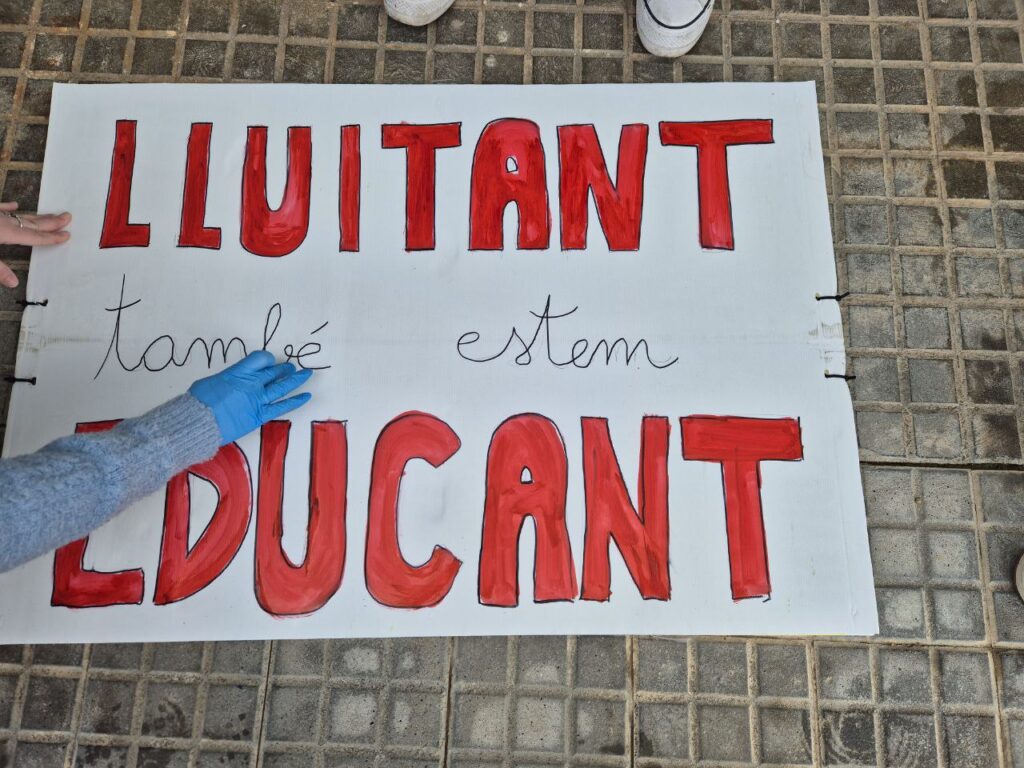 LLUITANT
també estem
EDUCANT